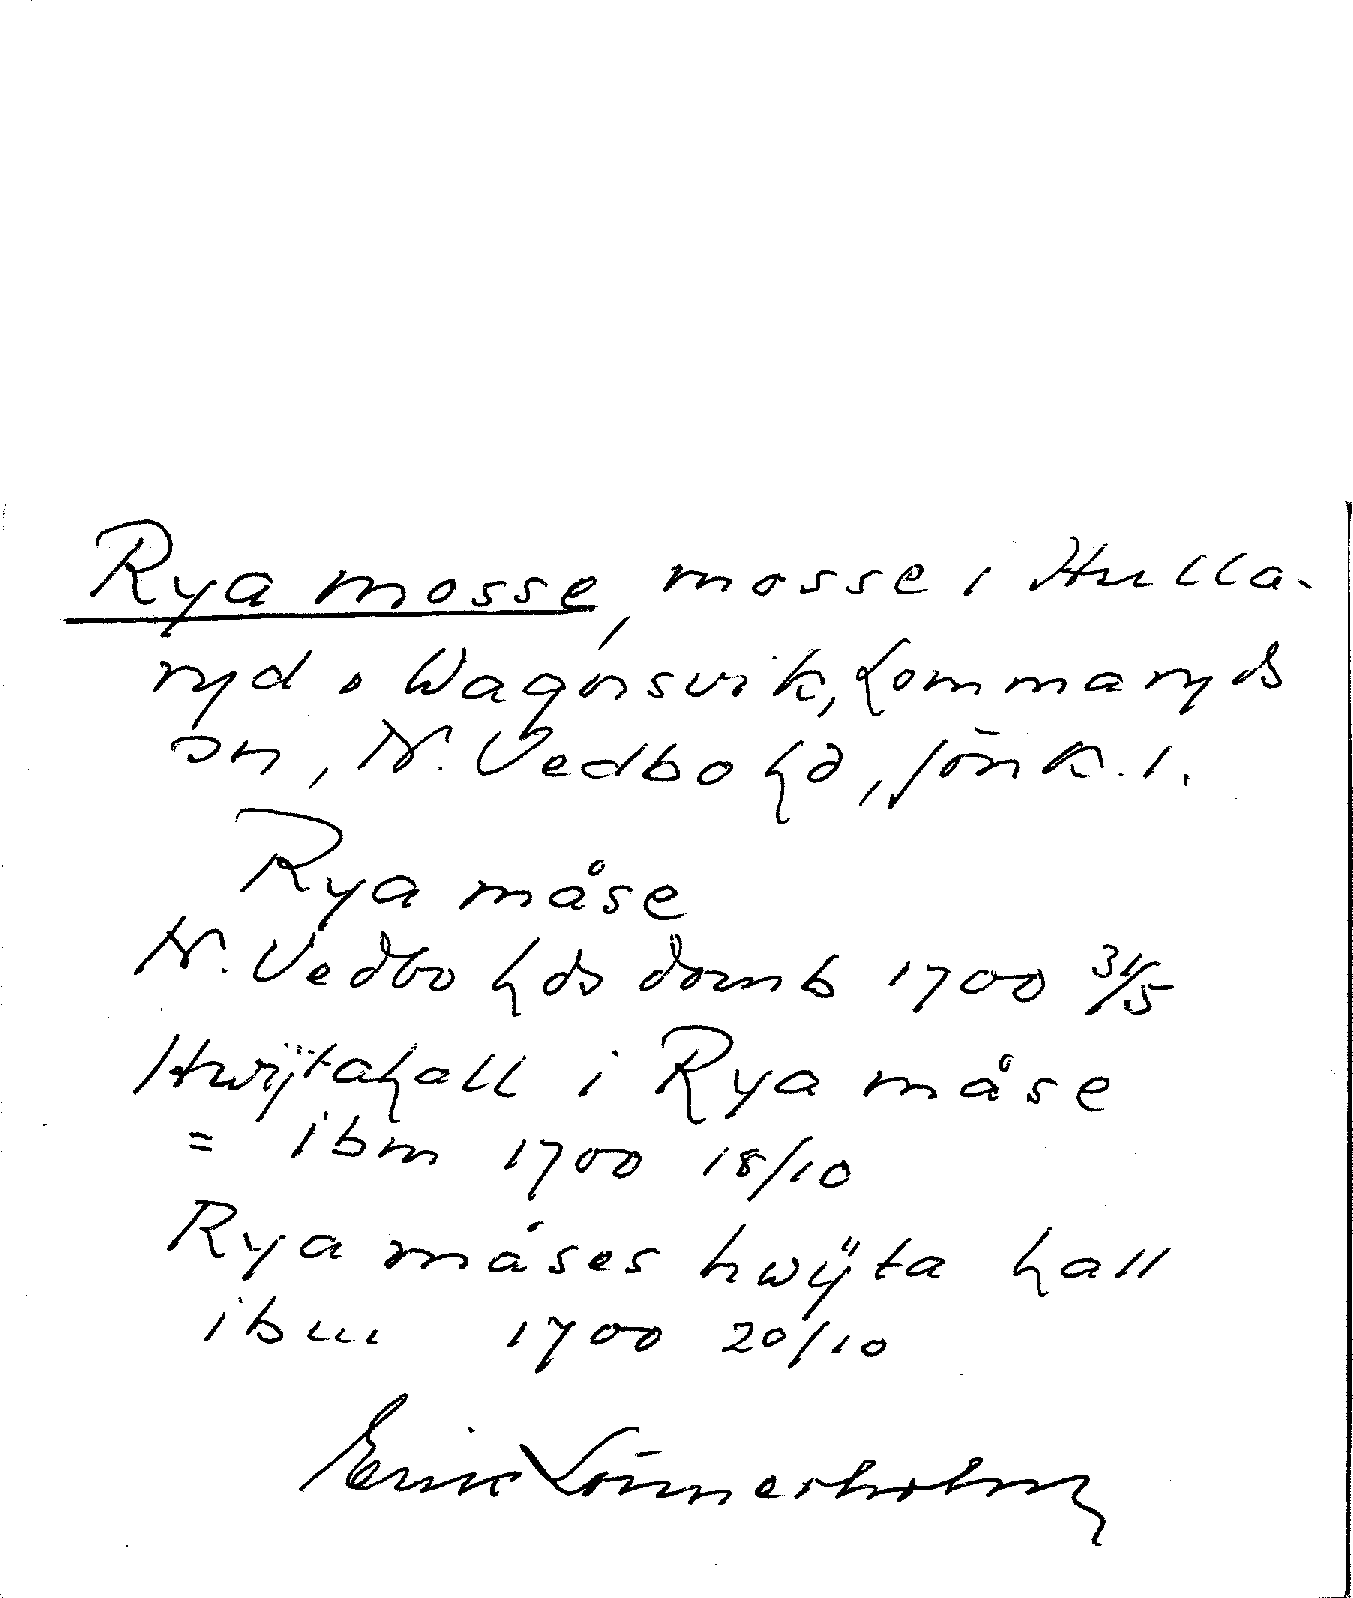 Rya mosse, mosse i Hulla-
ryd o Wagnsvik, Lommaryds
sn, N. Vedbo hd, Jönk. l.
Rya måse
N. Vedbo hds domb 1700 31/5
Hwÿtahall i Rya måse
= ibm 1700 18/10
Rya måses hwÿta hall
ibm 1700 20/10
Erik Lönnerholm